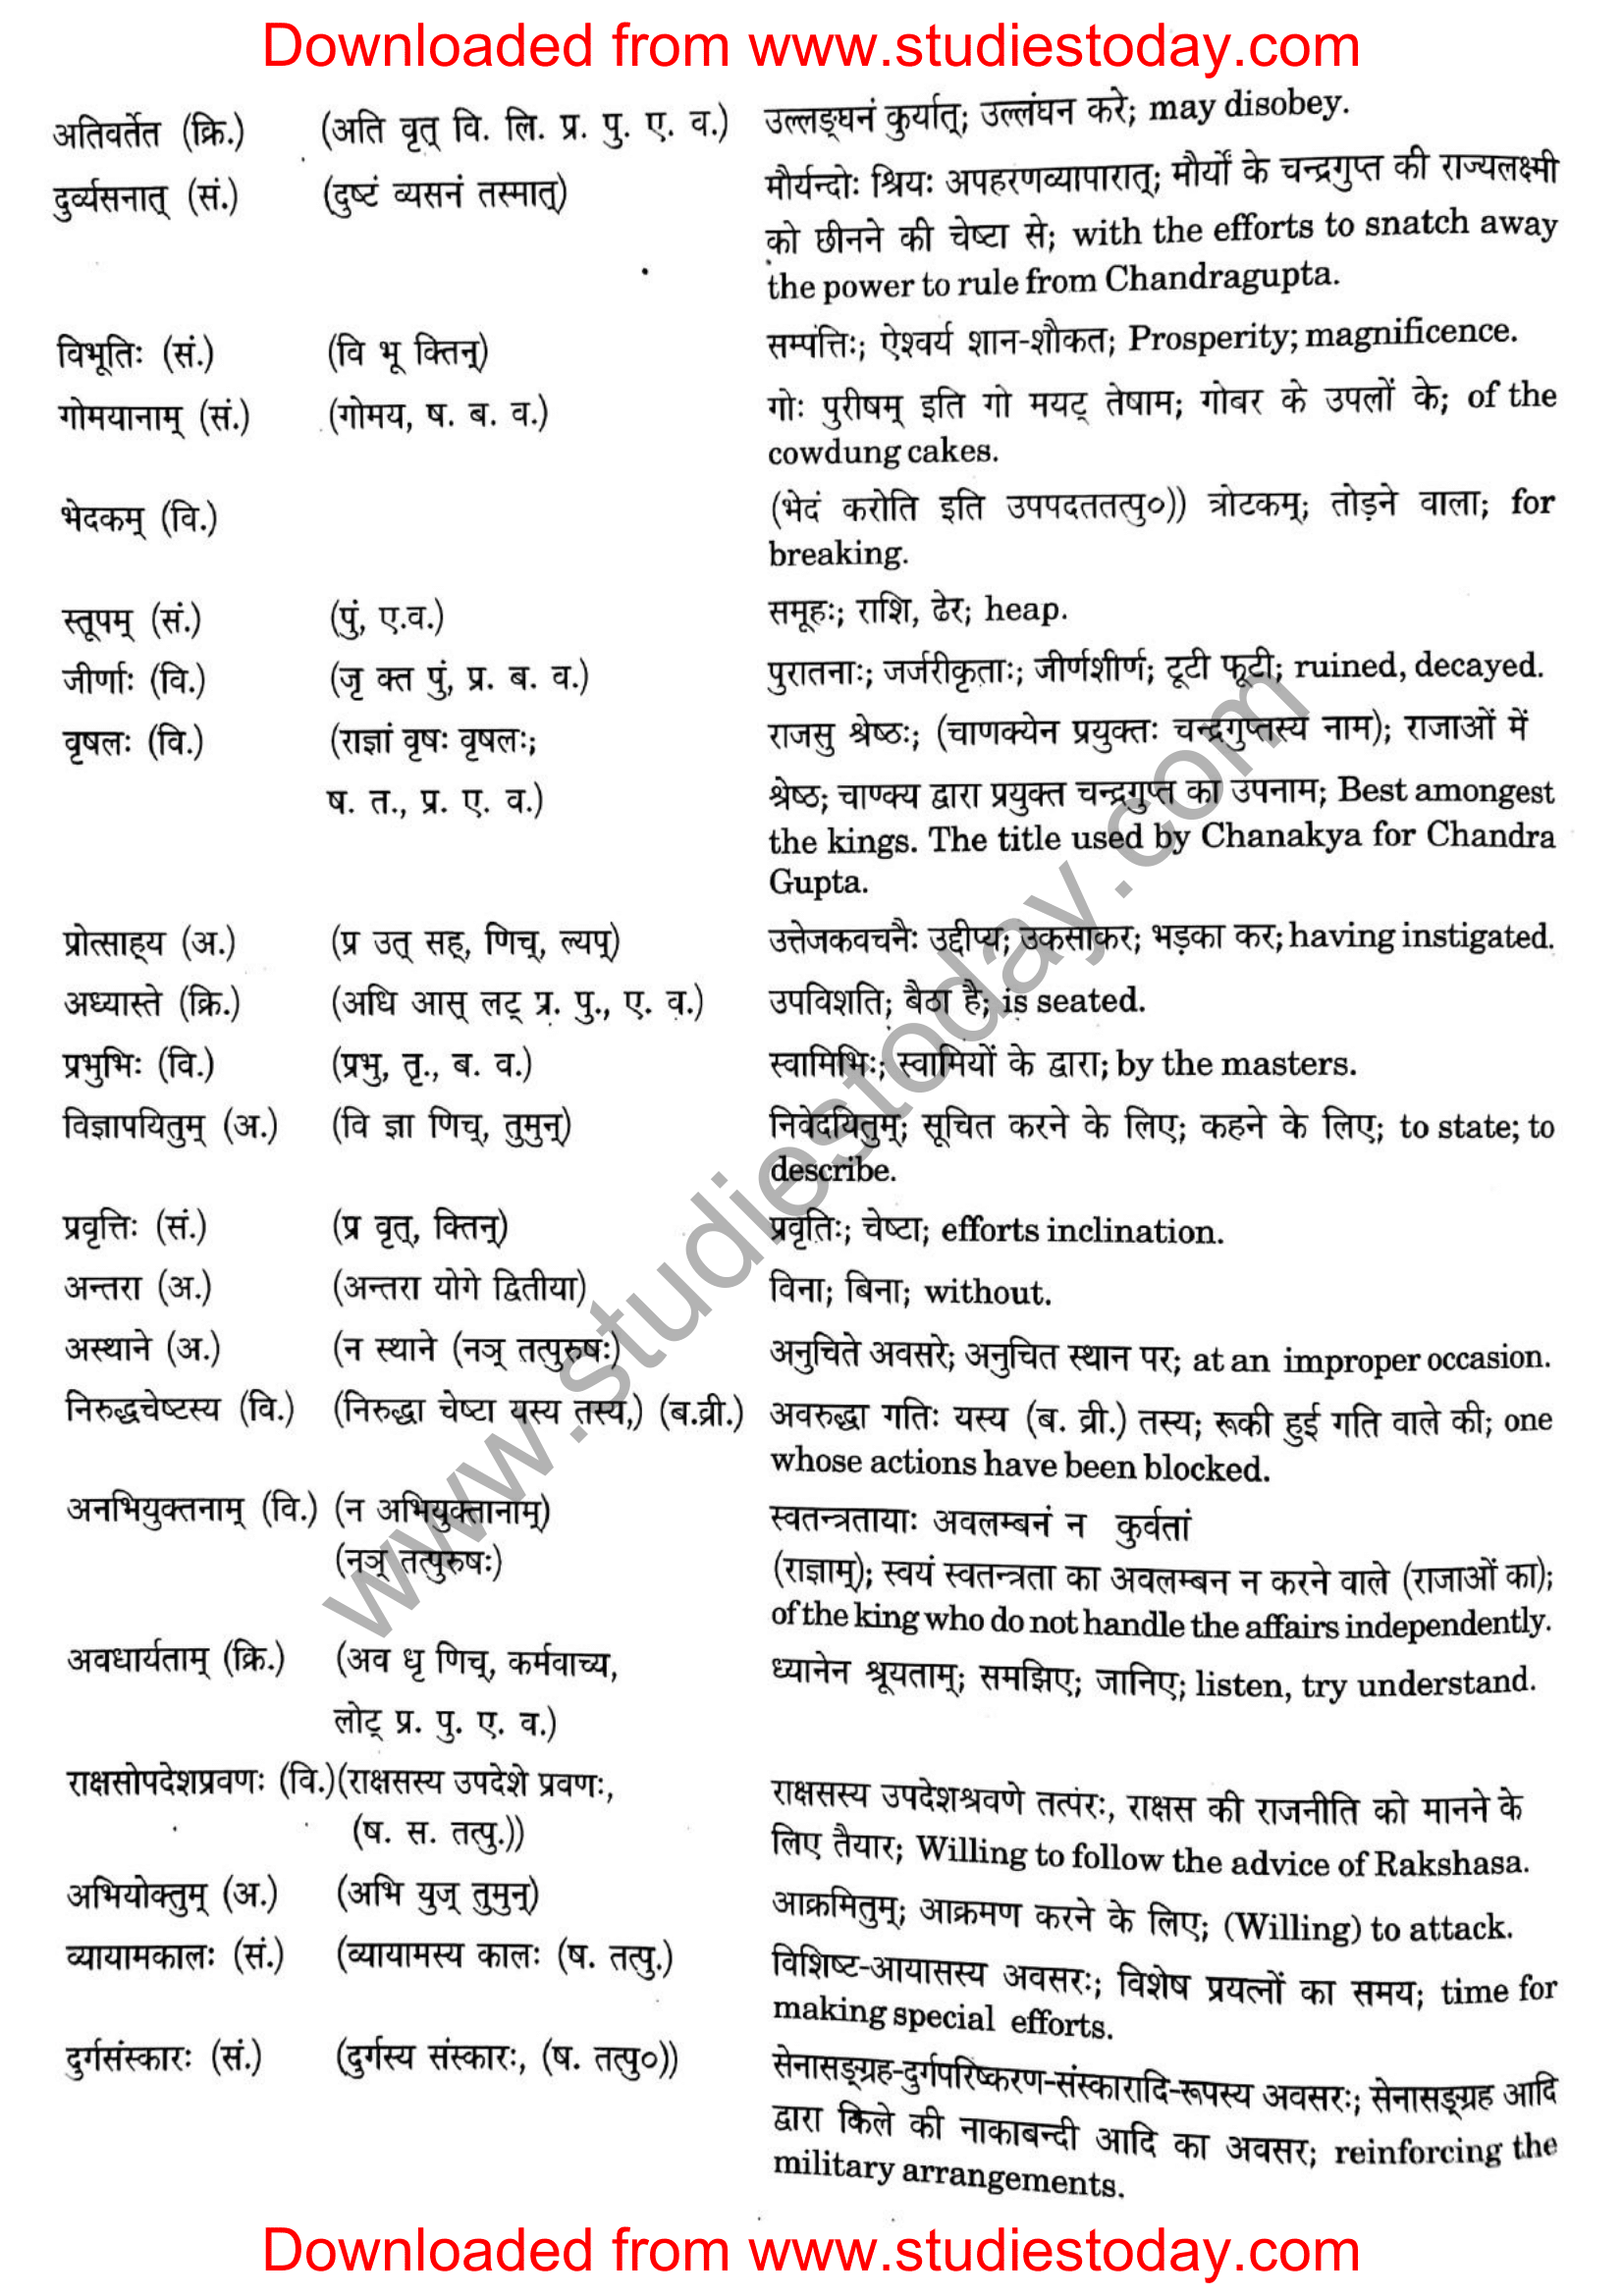 Downloaded from www.studiestoday.com
अतिवर्तेत (क्रि.) (अति वृत् वि. लि. प्र. पु. ए. व.) उल्लङ्घनं कुर्यात्; उल्लंघन करे; may disobey.
दुर्व्यसनात् (सं.) (दुष्टं व्यसनं तस्मात्) मौर्यन्दोः श्रियः अपहरणव्यापारात्; मौर्यों के चन्द्रगुप्त की राज्यलक्ष्मी
को छीनने की चेष्टा से; with the efforts to snatch away
the power to rule from Chandragupta.
विभूतिः (सं.) (वि भू क्तिन्) सम्पत्तिः; ऐश्वर्य शान-शौकत; Prosperity; magnificence.
गोमयानाम् (सं.) (गोमय, ष. ब. व.) गोः पुरीषम् इति गो मयट् तेषाम; गोबर के उपलों के; of the
cowdung cakes.
भेदकम् (वि.) (भेदं करोति इति उपपदततत्पु०)) त्रोटकम्; तोड़ने वाला; for
breaking.
स्तूपम् (सं.) (पुं, ए.व.) समूहः; राशि, ढेर; heap.
जीर्णाः (वि.) (जृ क्त पुं, प्र. ब. व.) पुरातनाः; जर्जरीकृताः; जीर्णशीर्ण; टूटी फूटी; ruined, decayed.
वृषलः (वि.) (राज्ञां वृषः वृषलः; राजसु श्रेष्ठः; (चाणक्येन प्रयुक्तः चन्द्रगुप्तस्य नाम); राजाओं में
ष. त., प्र. ए. व.) श्रेष्ठ; चाण्क्य द्वारा प्रयुक्त चन्द्रगुप्त का उपनाम; Best amongest
the kings. The title used by Chanakya for Chandra
Gupta.
प्रोत्साह्य (अ.) (प्र उत् सह्, णिच्, ल्यप्) उत्तेजकवचनैः उद्दीप्य; उकसाकर; भड़का कर; having instigated.
अध्यास्ते (क्रि.) (अधि आस् लट् प्र. पु., ए. व.) उपविशति; बैठा है; is seated.
प्रभुभिः (वि.) (प्रभु, तृ., ब. व.) स्वामिभिः; स्वामियों के द्वारा; by the masters.
विज्ञापयितुम् (अ.) (वि ज्ञा णिच्, तुमुन्) निवेदयितुम्; सूचित करने के लिए; कहने के लिए; to state; to
describe.
प्रवृत्तिः (सं.) (प्र वृत्, क्तिन्) प्रवृतिः; चेष्टा; efforts inclination.
अन्तरा (अ.) (अन्तरा योगे द्वितीया) विना; बिना; without.
अस्थाने (अ.) (न स्थाने (नञ् तत्पुरुषः) अनुचिते अवसरे; अनुचित स्थान पर; at an improper occasion.
निरुद्धचेष्टस्य (वि.) (निरुद्धा चेष्टा यस्य तस्य,) (ब.व्री.) अवरुद्धा गतिः यस्य (ब. व्री.) तस्य; रूकी हुई गति वाले की; one
whose actions have been blocked.
अनभियुक्तनाम् (वि.) (न अभियुक्तानाम्) स्वतन्त्रतायाः अवलम्बनं न कुर्वतां
(नञ् तत्पुरुषः) (राज्ञाम्); स्वयं स्वतन्त्रता का अवलम्बन न करने वाले (राजाओं का);
of the king who do not handle the affairs independently.
अवधार्यताम् (क्रि.) (अव धृ णिच्, कर्मवाच्य, ध्यानेन श्रूयताम्; समझिए; जानिए; listen, try understand.
लोट् प्र. पु. ए. व.)
राक्षसोपदेशप्रवणः (वि.) (राक्षसस्य उपदेशे प्रवणः, राक्षसस्य उपदेशश्रवणे तत्परः, राक्षस की राजनीति को मानने के
(ष. स. तत्पु.)) लिए तैयार; Willing to follow the advice of Rakshasa.
अभियोक्तुम् (अ.) (अभि युज् तुमुन्) आक्रमितुम्; आक्रमण करने के लिए; (Willing) to attack.
व्यायामकालः (सं.) (व्यायामस्य कालः (ष. तत्पु.) विशिष्ट-आयासस्य अवसरः; विशेष प्रयत्नों का समय; time for
making special efforts.
दुर्गसंस्कारः (सं.) (दुर्गस्य संस्कारः, (ष. तत्पु०)) सेनासङ्ग्रह-दुर्गपरिष्करण-संस्कारादि-रूपस्य अवसरः; सेनासङ्ग्रह आदि
द्वारा किले की नाकाबन्दी आदि का अवसर; reinforcing the
military arrangements.
www.studiestoday.com
Downloaded from www.studiestoday.com